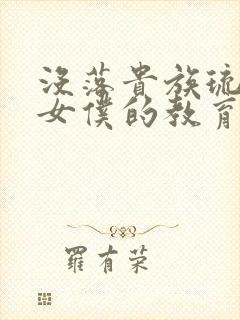 没落貴族琉
女僕的教育
羅有荣